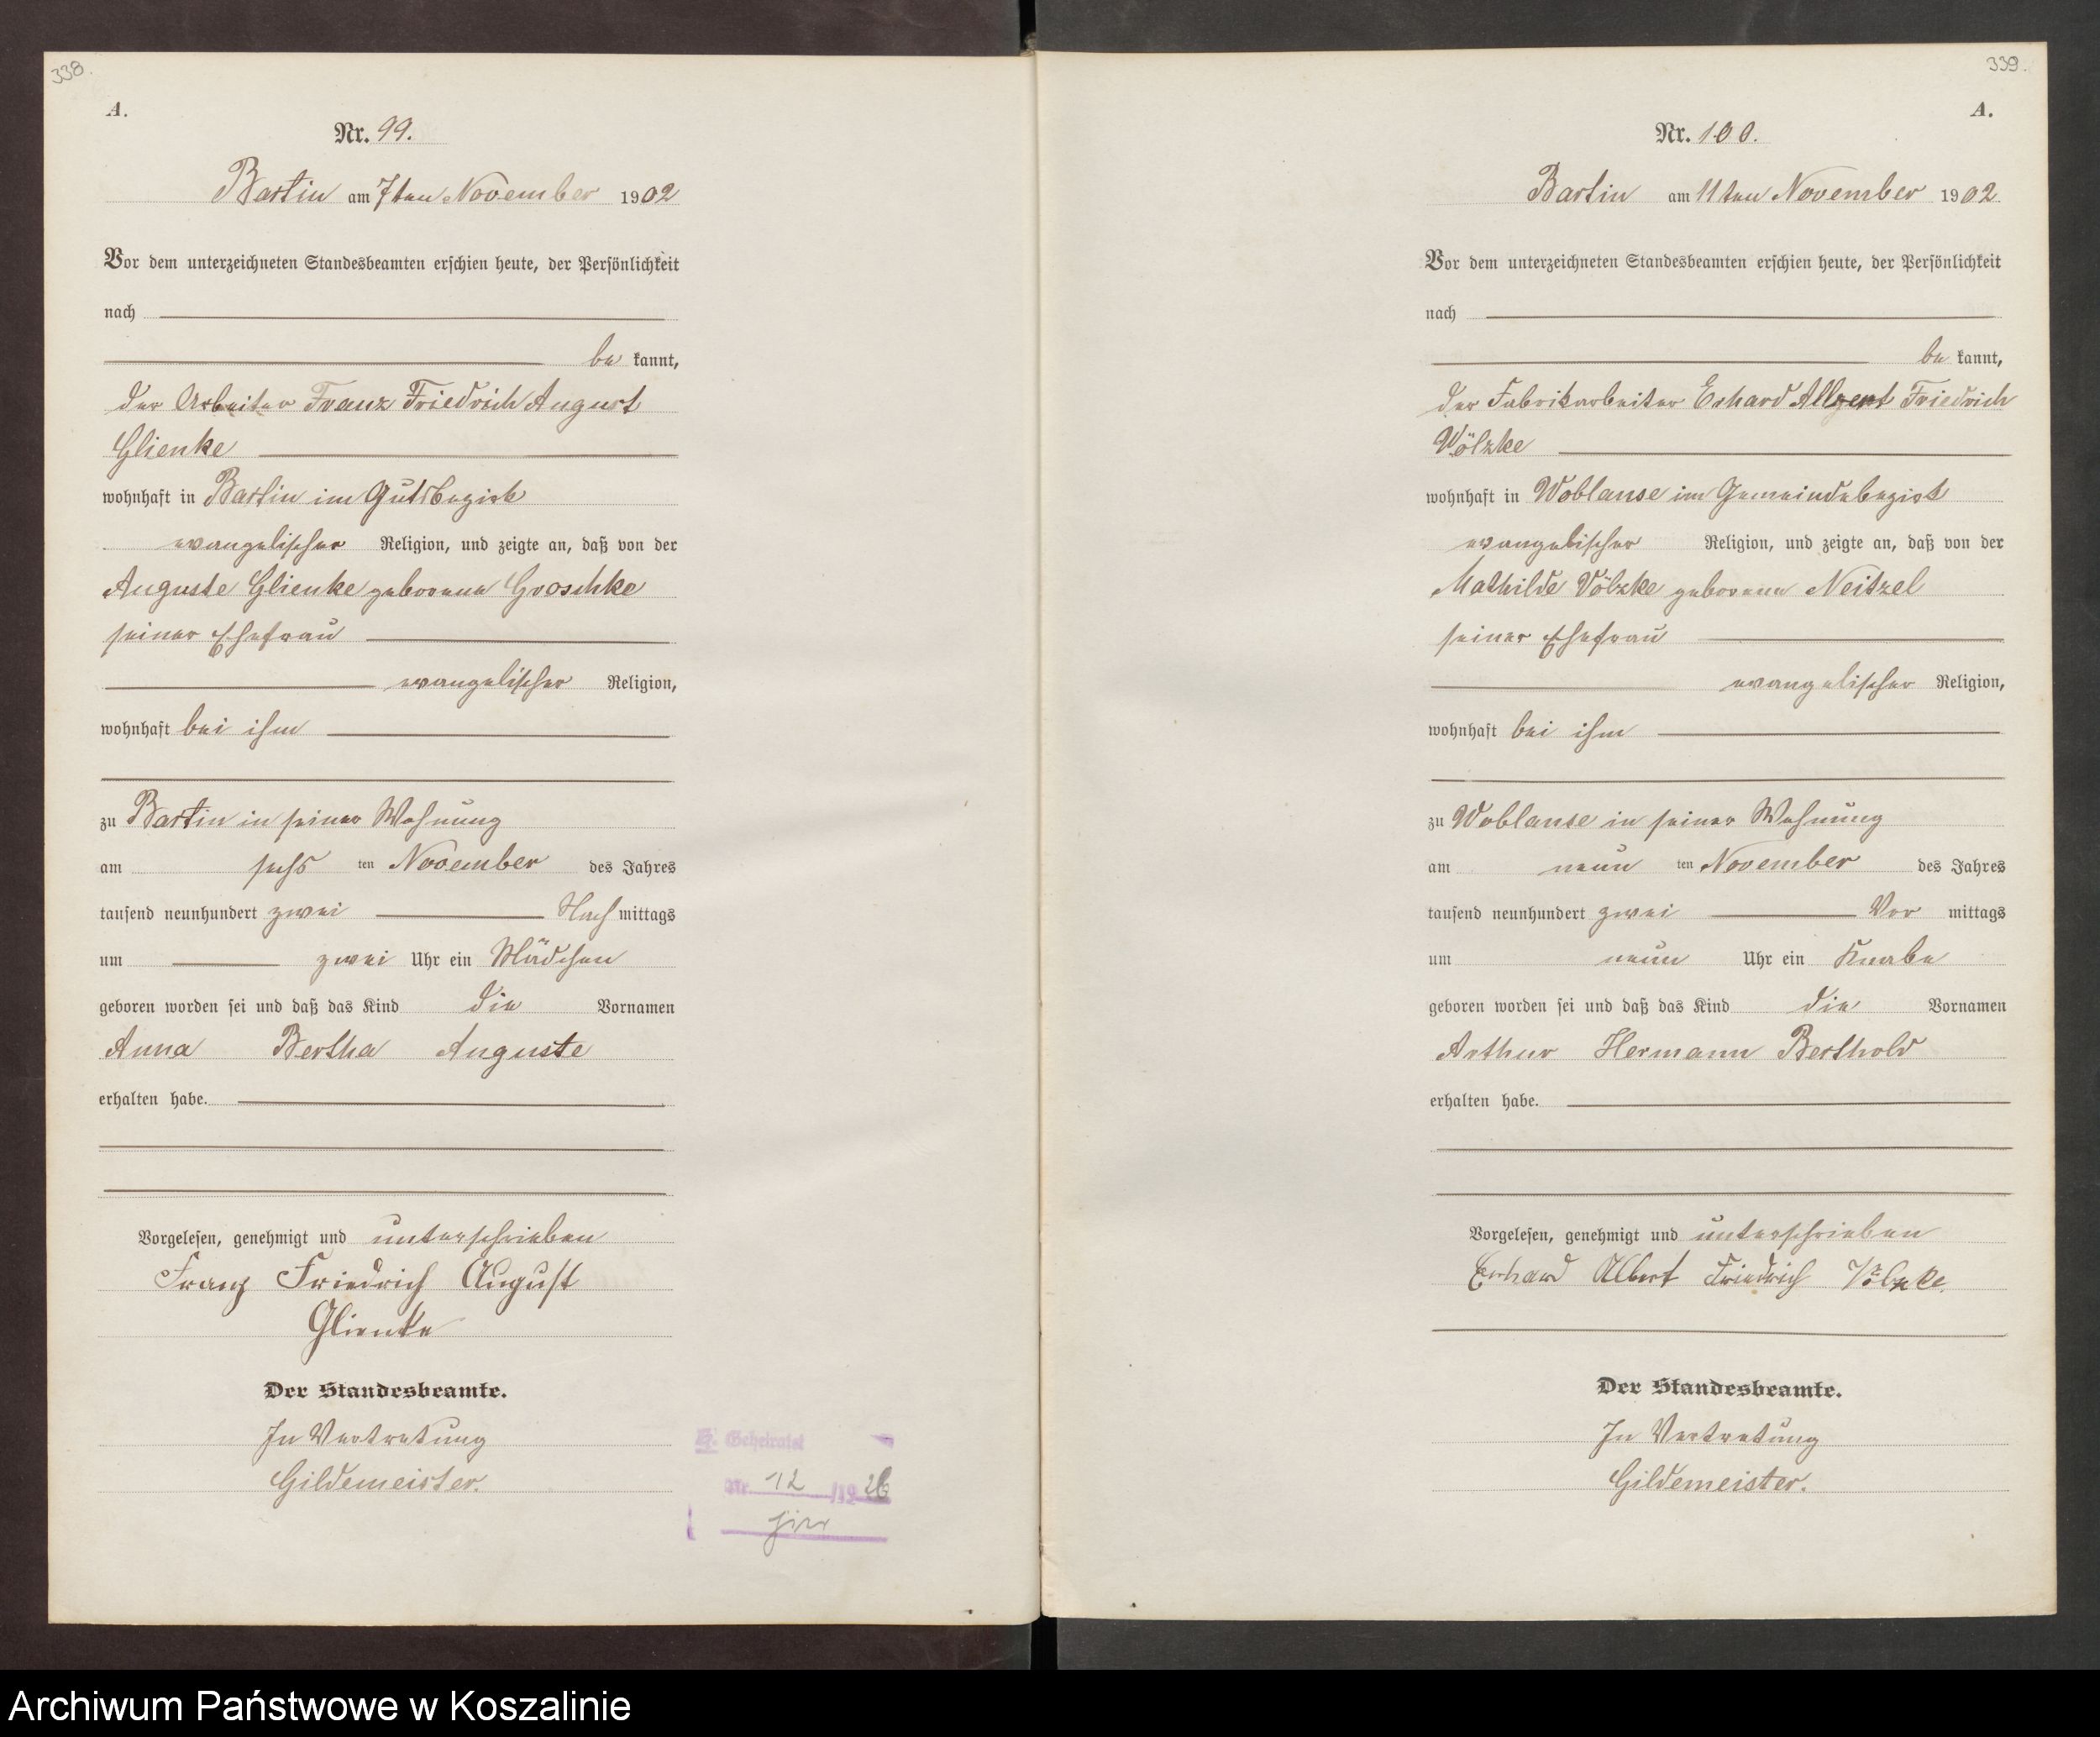 338.
A.
Nr. 99.
Bartin am 7ten November 1902
Vor dem unterzeichneten Standesbeamten erschien heute, der Persönlichkeit
nach
be kannt,
der Arbeiter Franz Friedrich August
Glienke
wohnhaft in Bartin im Gutsbezirk
evangelischer Religion, und zeigte an, daß von der
Auguste Glienke geborene Groschke
seiner Ehefrau
evangelischer Religion,
wohnhaft bei ihm
zu Bartin in seiner Wohnung
am sechs ten November des Jahres
tausend neunhundert zwei Nach mittags
um zwei Uhr ein Mädchen
geboren worden sei und daß das Kind die Vornamen
Anna Bertha Auguste
erhalten habe.
Vorgelesen, genehmigt und unterschrieben
Franz Friedrich August
Glienke
Der Standesbeamte.
In Vertretung
Gildemeister.
H. Geheiratet
Nr. 12 /1926
339.
A.
Nr. 100.
Bartin am 11ten November 1902.
Vor dem unterzeichneten Standesbeamten erschien heute, der Persönlichkeit
nach
be kannt,
der Fabrikarbeiter Erhard Friedrich
Wölzke
wohnhaft in Woblanse im Gemeindebezirk
evangelischer Religion, und zeigte an, daß von der
Mathilde Völzke geborene Neitzel
seiner Ehefrau
evangelischer Religion,
wohnhaft bei ihm
zu Woblanse in seiner Wohnung
am neun ten November des Jahres
tausend neunhundert zwei Vor mittags
um neun Uhr ein Knabe
geboren worden sei und daß das Kind die Vornamen
Arthur Hermann Berthold
erhalten habe.
Vorgelesen, genehmigt und unterschrieben
Erhard Albert Friedrich Völzke.
Der Standesbeamte.
In Vertretung
Gildemeister.
Archiwum Państwowe w Koszalinie